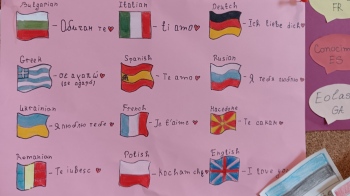 Bulgarian Italian Deutch
- Обичам те - ti amo - Ich liebe dich
Greek Spanish Rusian
- σε αγαπώ - Te amo - Я тебя люблю
(se agapó)
Ukrainian French Macedone
- Я люблю тебе - Je t'aime - Te сакам
Romanian Polish English
- Te iubesc - kocham cię - I love
FR
Conocim
ES
Eolas
GA